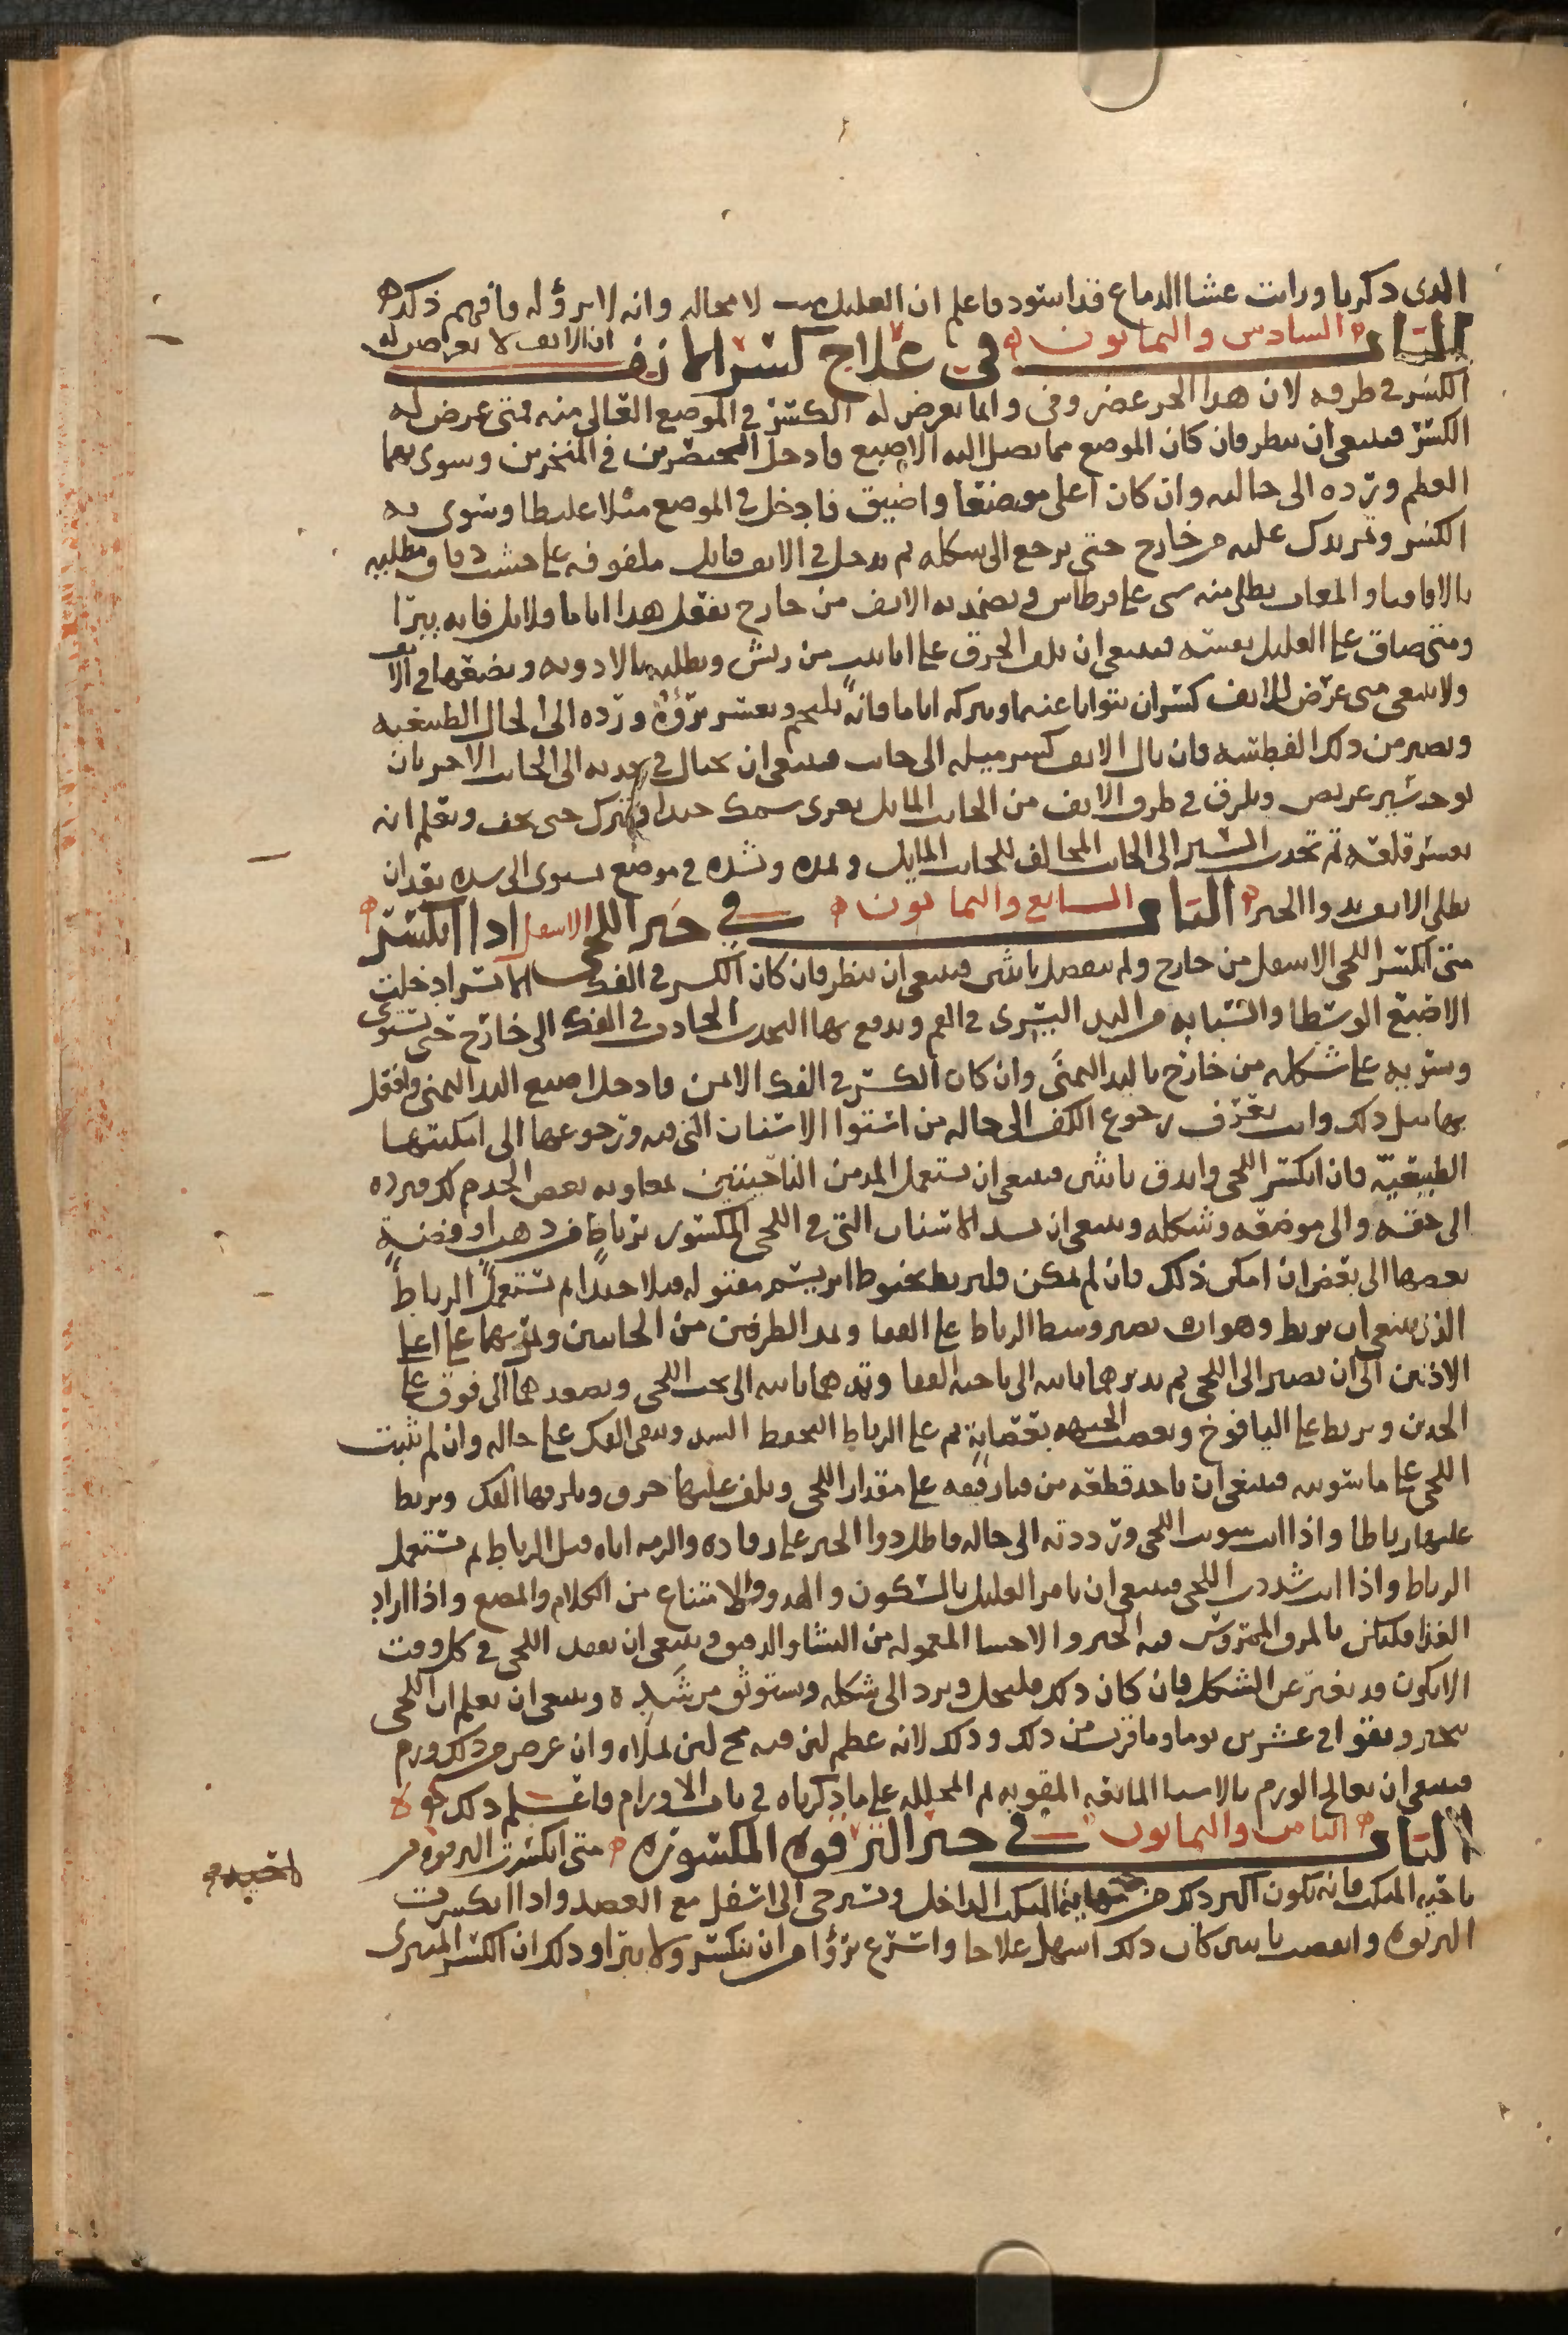 الذي ذكرنا ورايت غشا الدماغ قد اسود فاعلم ان العليل يموت لا محاله وانه لا برؤ له فافهم ذلك
الباب السادس والثمانون في علاج كسر الانف ان الانف لا يعرض له
الكسر في طرفه لان هذا الجز غضروفي وانما يعرض له الكسر في الموضع العالي منه فمتى عرض له
الكسر فينبغي ان ينظر فان كان الموضع مما يصل اليه الاصبع فادخل الخنصرين في المنخرين وسوي بهما
العظم وترده الى حاله وان كان اعلى موضعا واضيق فادخل في الموضع ميلا غليظا وسوي به
الكسر و عليه من خارج حتى يرجع الى شكله ثم يدخل في الانف فتايل ملفوفه على وتطليه
بالاقاقيا والمغاث يطلى منه شي على قرطاس ويضمد به الانف من خارج يفعل هذا اياما قلايل فانه يبرا
ومتى ضاق على العليل نفسه فينبغي ان يلف الخرق على انابيب من ريش ويطليه بالادويه ويضعها في الانف
ولا ينبغي متى عرض للانف كسر ان يتوانا عنه او يتركه اياما فانه يلتحم ويعسر برؤه ورده الى الحال الطبيعيه
ويصير من ذلك الفطسه فان نال الانف كسر ميله الى جانب فينبغي ان يحتال في جذبه الى الجانب الاخر بان
يوخذ سير عريض ويلزق في طرف الانف من الجانب المايل بغرى سمك جيدا ويترك حتى يجف ويعلم انه
يعسر قلعه ثم تجذب السير الى الجانب المخالف للجانب المايل وتمده وتشده في موضع يستوي الى شده بعد ان
يطلى الانف بدوا الجبر الباب السابع والثمانون في جبر اللحي الاسفل اذا انكسر
متى انكسر اللحي الاسفل من خارج ولم ينفصل باثنين فينبغي ان ينظر فان كان الكسر في الفك الايسر ادخلت
الاصبع الوسطا والسبابه من اليد اليسرى في الفم ويدفع بها التحدب الحادث في الفك الى خارج حتى تستوي
وسويه على شكله من خارج باليد اليمنى وان كان الكسر في الفك الايمن فادخل اصبع اليد اليمنى وافعل
بها مثل ذلك وانت تعرف رجوع الكف الى حاله من استوا الاسنان التي فيه ورجوعها الى امكنتها
الطبيعيه فان انكسر اللحي واندق باثنين فينبغي ان يستعمل المد من الناحيتين بمعاونه بعض الخدم لك فترده
الى حقه والى موضعه وشكله وينبغي ان تشد الاسنان التي في اللحي المكسور برباط من ذهب او فضه
بعضها الى بعض ان امكن ذلك فان لم يمكن فليربط بخيوط ابريسم مفتوله فتلا جيدا ثم تستعمل الرباط
الذي ينبغي ان يربط وهو ان تصير وسط الرباط على القفا وتمد الطرفين من الجانبين وتمر بهما على اعلى
الاذنين الى ان تصير الى اللحي ثم تديرهما ثانيه الى ناحيه القفا وتردهما ثانيه الى تحت اللحي وتصعدهما الى فوق على
الخدين وتربط على اليافوخ وتعصب الجبهه بعصابه ثم على الرباط اليحفظ الشد ويبقى الفك على حاله وان لم تثبت
اللحي على ما سويته فينبغي ان ياخذ قطعه من رقيقه على مقدار اللحي ويلف عليها خرق ويلزمها الفك ويربط
عليها رباطا واذا انت سويت اللحي ورددته الى حاله فاطل دوا الجبر على رفاده والزمه اياه قبل الرباط ثم تستعمل
الرباط واذا انت شددت اللحي فينبغي ان يامر العليل بالسكون والهدوو والامتناع من الكلام والمضع واذا اراد
الغذا فليكن بالمرق الممروس فيه الخبز والاحسا المعموله من النشا والدقيق وينبغي ان تفقد اللحي في كل وقت
الا يكون قد تغير عن الشكل فان كان ذلك فليحل ويرد الى شكله ويستوثق من شده وينبغي ان يعلم ان اللحي
ينجبر ويقوا في عشرين يوما وما قرب من ذلك وذلك لانه عظم لين فيه مخ لين يملاه وان عرض من ذلك ورم
فينبغي ان يعالج الورم بالاشيا المانعه المقويه ثم المحلله على ما ذكرناه في باب الاورام فاعلم ذلك
الباب الثامن والثمانون في جبر الترقوه المكسوره متى انكسرت الترقوه من
ناحيه المنكب فانه يكون اكبر ذلك المنكب الداخل وتسترخي الى اسفل مع العضد واذا انكسرت
الترقوه وانقصفت باثنين كان ذلك اسهل علاجا واسرع برؤا من ان ينكسر ولا يتبرا وذلك ان الكسر المتبري